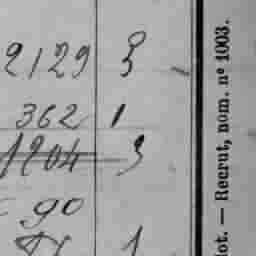 2129 3
362 1
1204 3
90
1
lot. — Recrut, nom. nº 1003.